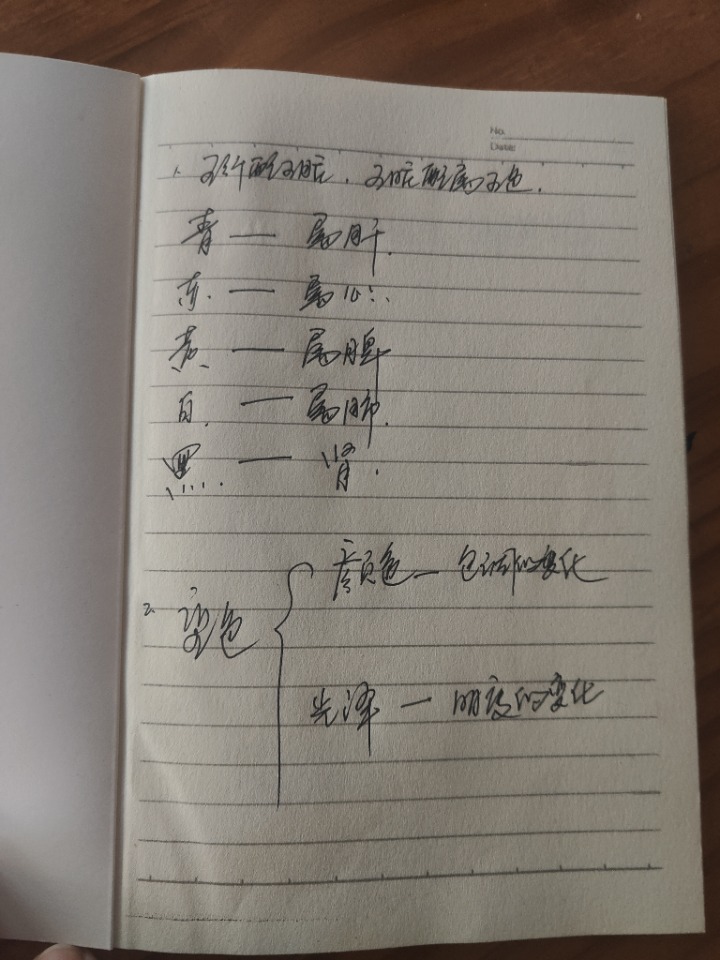 No.
Date
1. 五行配五脏，五脏配属五色.
青 — 属肝.
赤. — 属心.
黄 — 属脾
白. — 属肺.
黑. — 肾.
颜色 — 色调的变化
2.
色
光泽 — 明度的变化